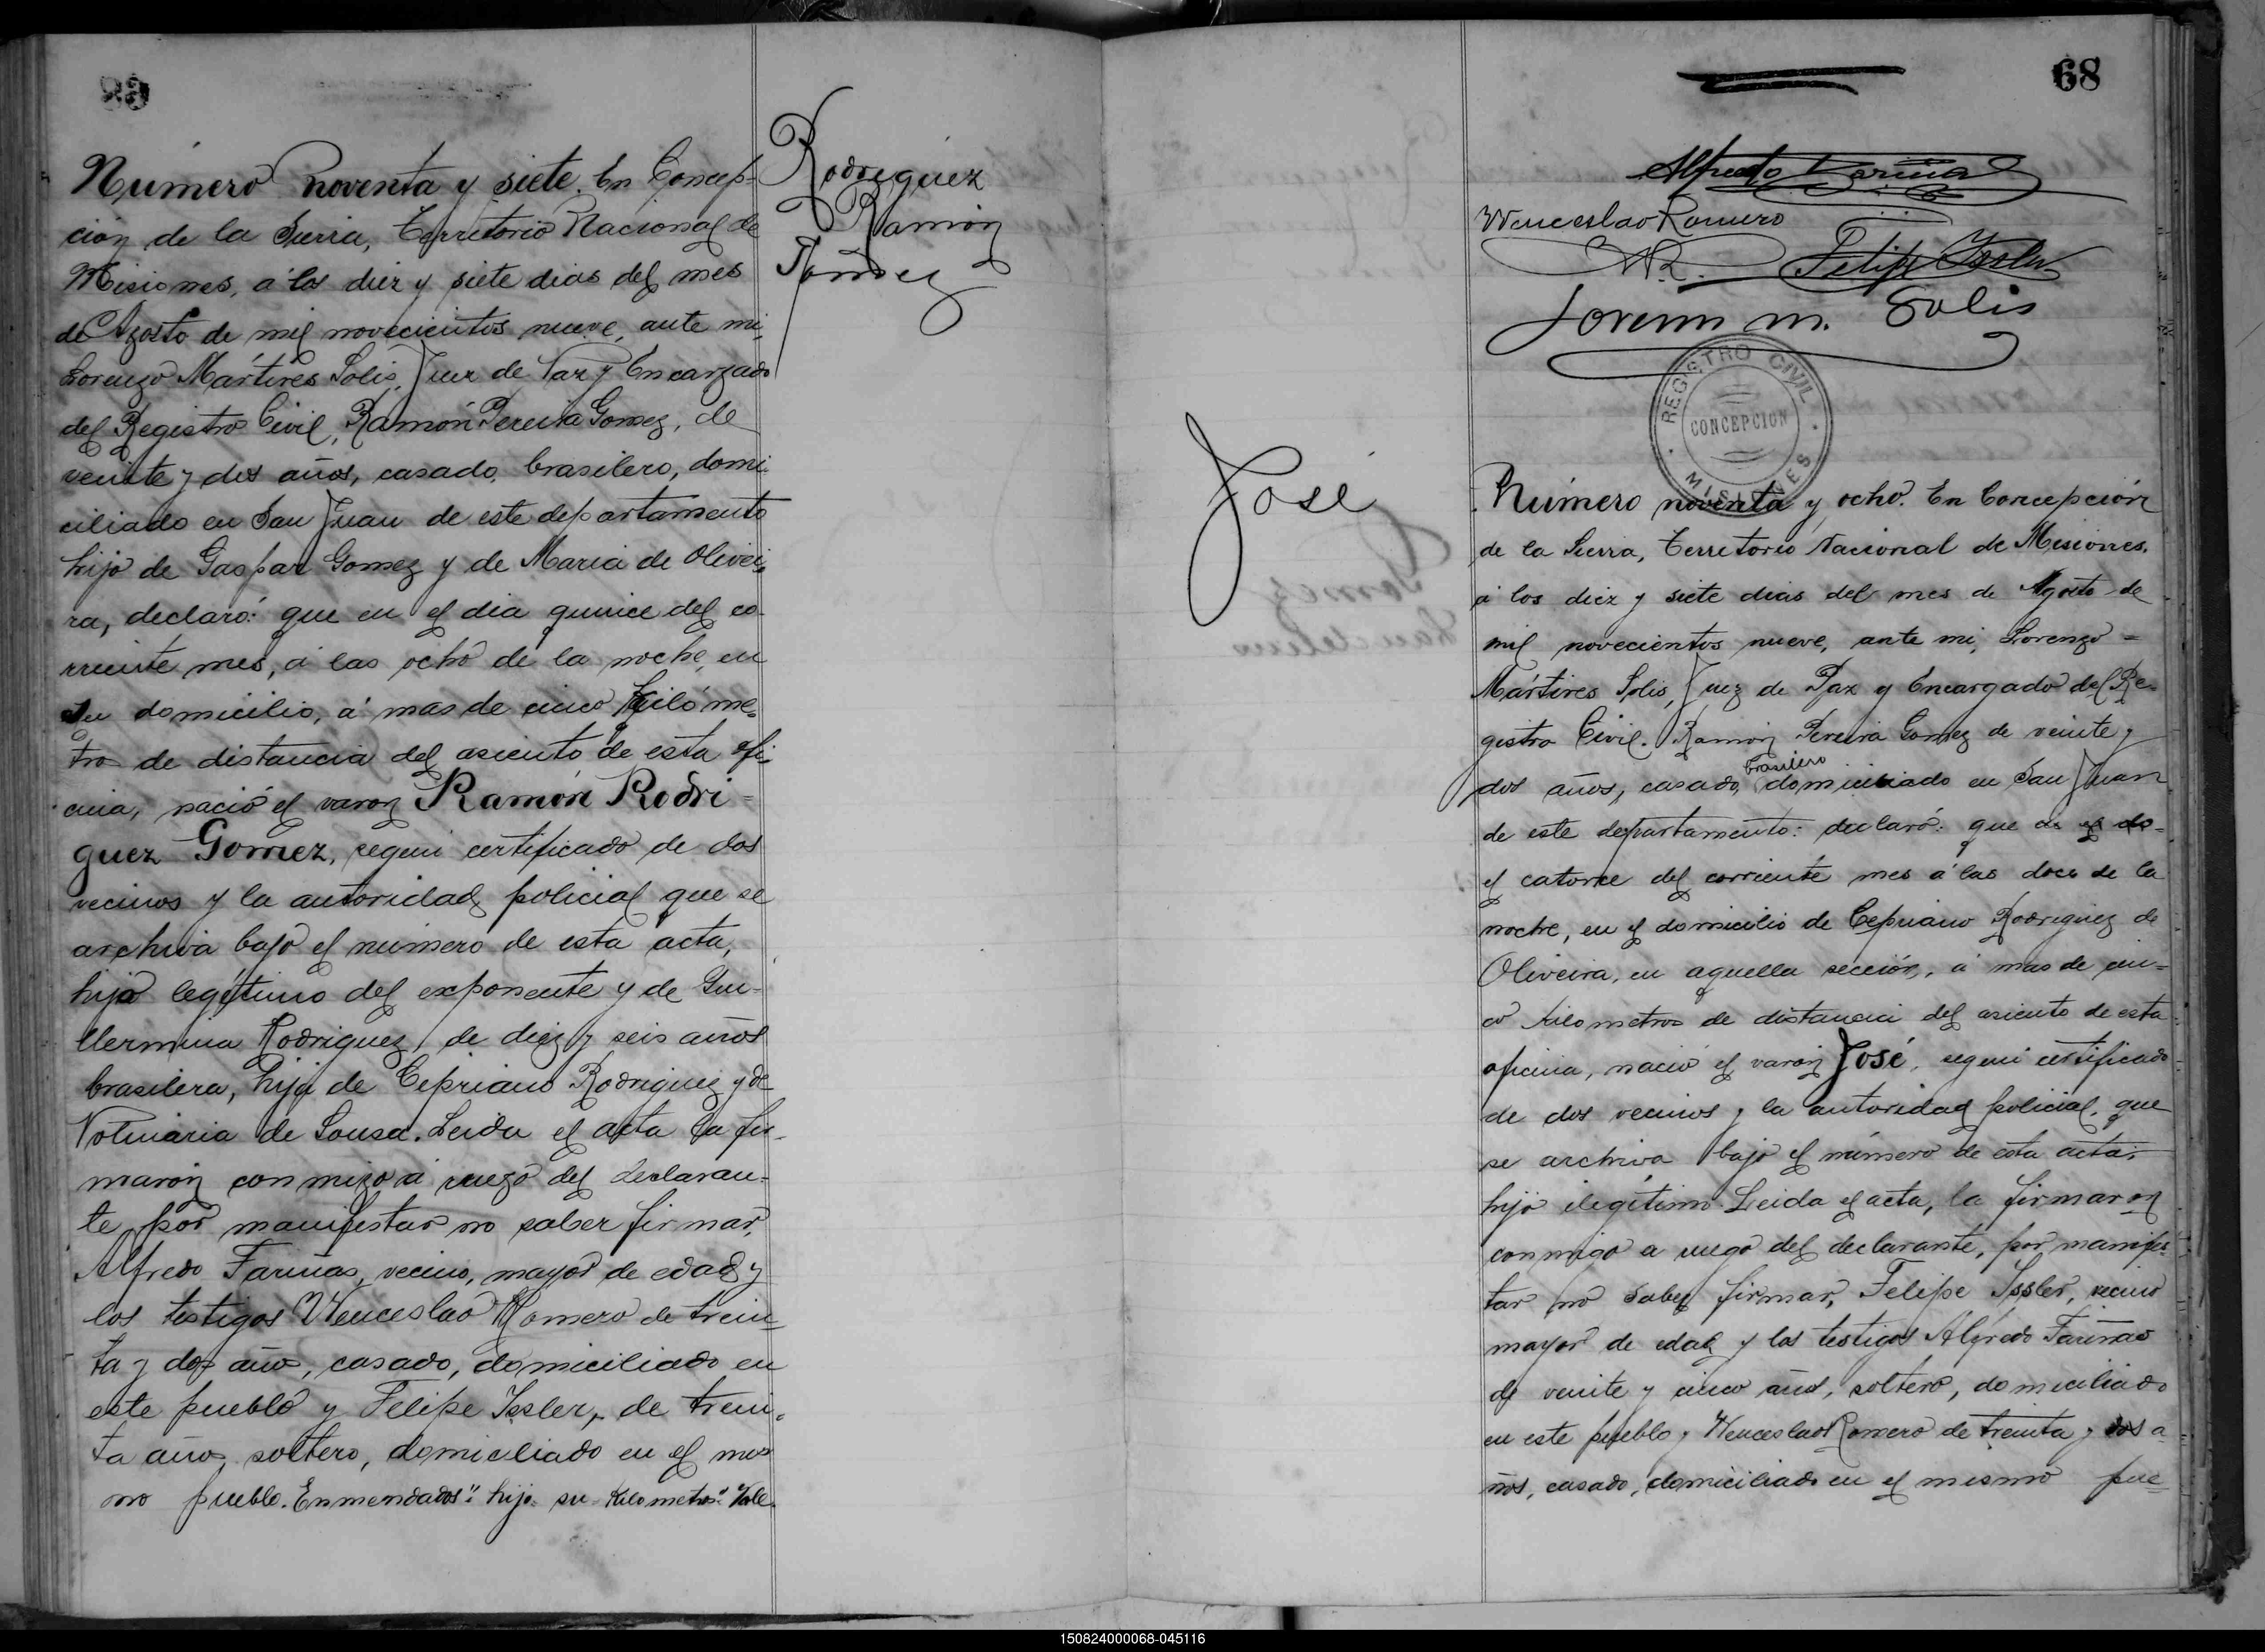 Número noventa y siete. En Concep-
ción de la Sierra, Territorio Nacional de
Misiones, á los diez y siete dias del mes
de Agosto de mil novecientos nueve, ante mi,
Lorenzo Mártires Solis, Juez de Paz y Encargado
del Registro Civil, Ramón Pereira Gomez, de
veinte y dos años, casado, brasilero, domi-
ciliado en San Juan de este departamento
hijo de Gaspar Gomez y de Maria de Olivei-
ra, declaró: que en el dia quince del co-
rriente mes, á las ocho de la noche, en
su domicilio, á mas de cinco kilóme-
tros de distancia del asiento de esta ofi-
cina, nació el varon Ramón Rodri-
guez Gomez, segun certificado de dos
vecinos y la autoridad policial que se
archiva bajo el número de esta acta,
hijo legítimo del exponente y de Gui-
llermina Rodriguez, de diez y seis años
brasilera, hija de Cipriano Rodriguez y de
de Sousa. Leida el acta la fir-
maron conmigo á ruego del declaran-
te por manifestar no saber firmar,
Alfredo Fariñas, vecino, mayor de edad y
los testigos Wenceslao Romero de trein-
ta y dos años, casado, domiciliado en
este pueblo y Felipe Issler, de trein-
ta años, soltero, domiciliado en el mis
mo pueblo. Enmendados: " hijo - su - Kilometros" Vale.
Rodriguez
Ramón
Gomez
68
Alfredo Fariñas
Wenceslao Romero
WR. Felipe Issler
Lorenzo M. Solis
REGISTRO CIVIL
CONCEPCION
MISIONES
José
Número noventa y ocho. En Concepción
de la Sierra, Territorio Nacional de Misiones,
á los diez y siete dias del mes de Agosto de
mil novecientos nueve, ante mi, Lorenzo =
Mártires Solis, Juez de Paz y Encargado del Re-
gistro Civil. Ramón Pereira Gomez de veinte y
brasilero
dos años, casado, domiciliado en San Juan
de este departamento: declaró: que
el catorce del corriente mes á las doce de la
noche, en el domicilio de Cepriano Rodriguez de
Oliveira, en aquella sección, á mas de cin=
co kilometros de distancia del asiento de esta
oficina, nació el varón José, segun certificado
de dos vecinos y la autoridad policial, que
se archiva bajo el número de esta acta;
hijo ilegítimo. Leida el acta, la firmaron
conmigo a ruego del declarante, por manifes-
tar no saber firmar, Felipe Issler, vecino
mayor de edad y los testigos Alfredo Fariñas
de veinte y cinco años, soltero, domiciliado
en este pueblo y Wenceslao Romero de treinta y dos a-
ños, casado, domiciliado en el mismo pue-
150824000068-045116